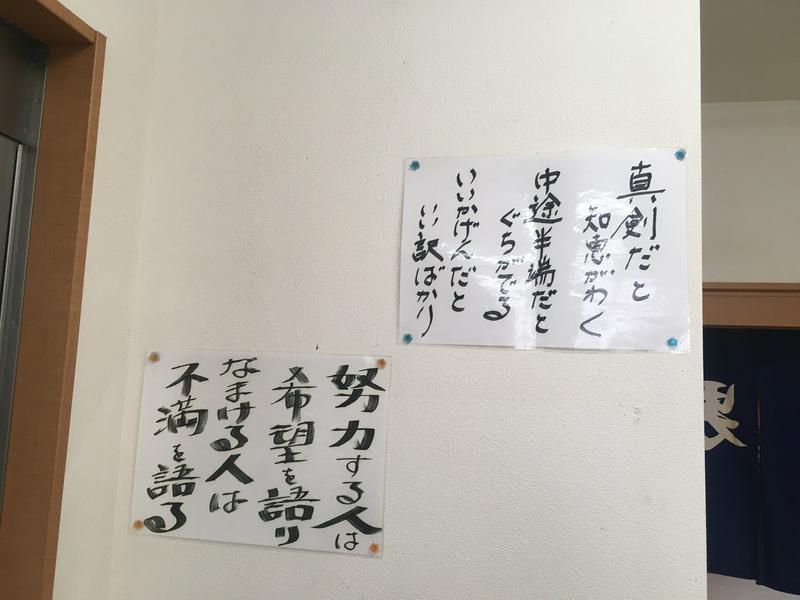 真剣だと
知恵がわく
中途半端だと
ぐちがでる
いいかげんだと
いい訳ばかり
努力する人は
希望を語り
なまける人は
不満を語る